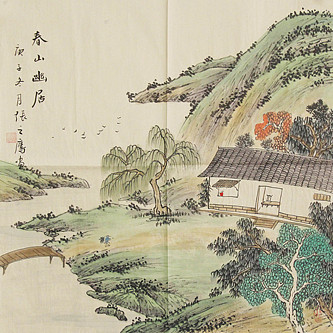 春山幽居
庚子冬月張